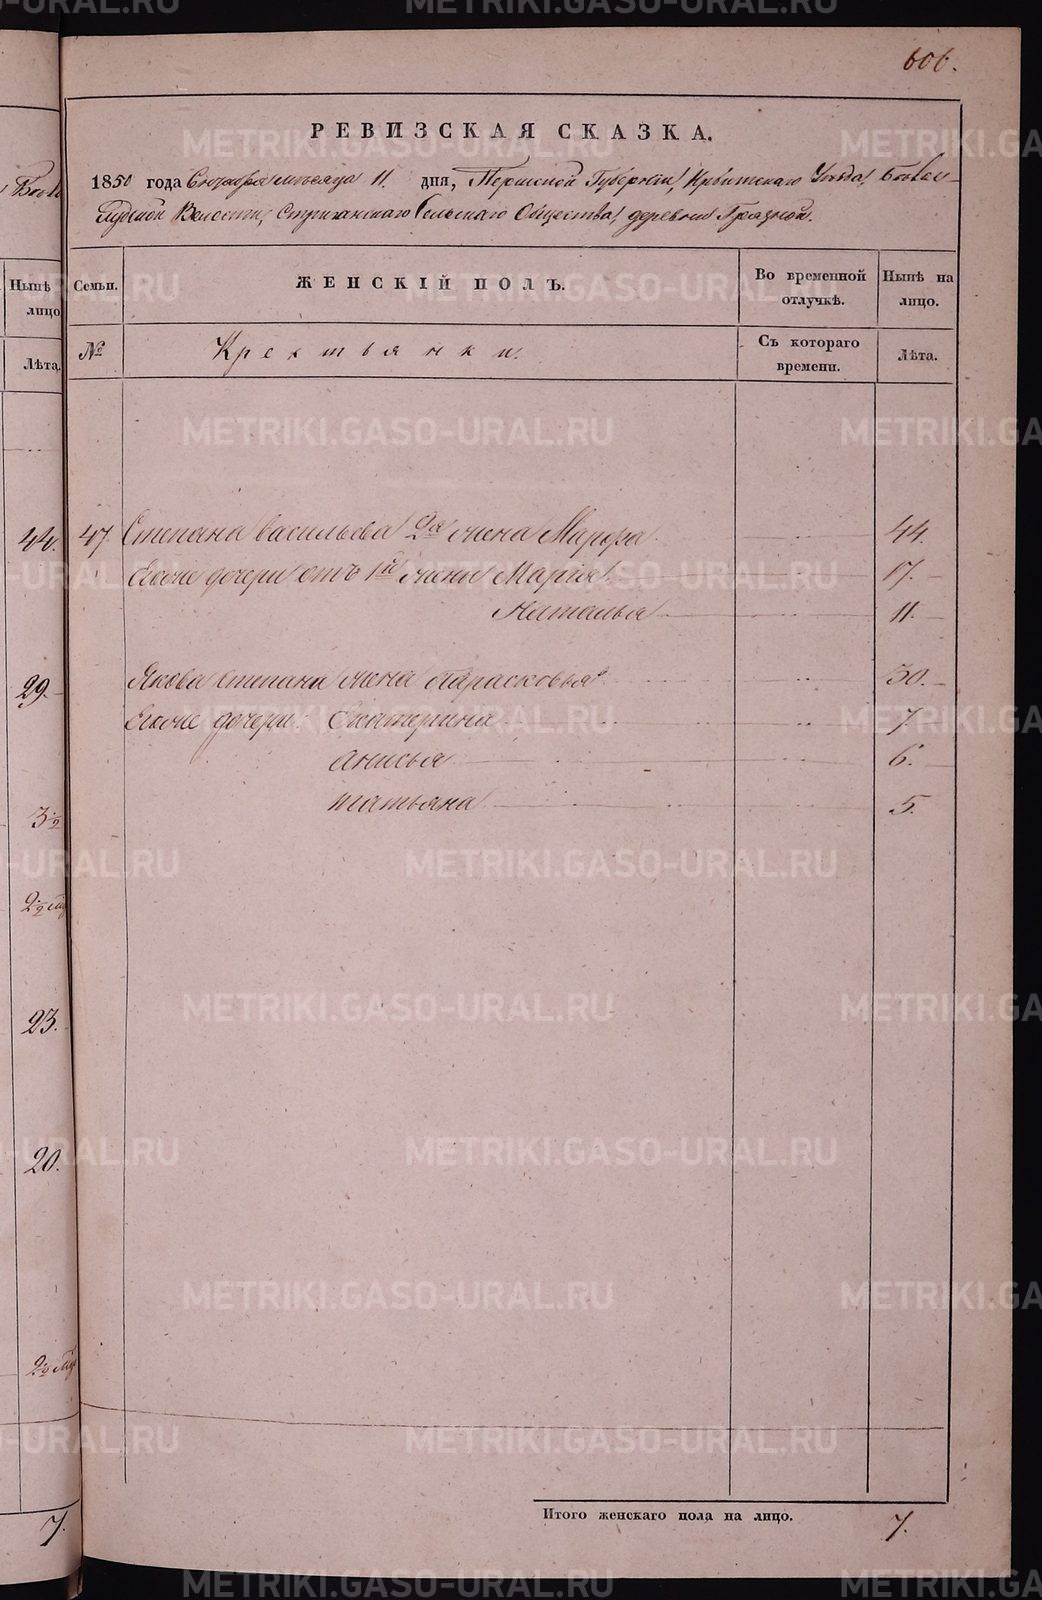 606.
РЕВИЗСКАЯ СКАЗКА.
1850 года Сентября месяца 11. дня, Пермской Губернии, Ирбитскаго Уезда,
Волости, Стриганскаго Сельскаго Общества, деревни Грязной.
Нынѣ
лицо
Лѣта.
Семьи. ЖЕНСКІЙ ПОЛЪ. Во временной отлучкѣ. Нынѣ на лицо.
№ Крестьянки. Съ котораго времени. Лѣта.
44. 47. Степана Васильева 2я жена Марфа 44.
Егоже дочери отъ 1й жены Марія 17.
Наталья 11.
29. Якова Степана жена Парасковья 30.
Егоже дочери: Екатерина 7
Анисья 6.
Татьяна 5.
3 1/2
23.
20.
7.
Итого женскаго пола на лицо. 7.
METRIKI.GASO-URAL.RU